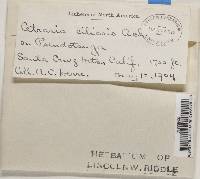 Lichens of North America.
Cetraria ciliaris Ach.
on Pseudotsuga
Santa Cruz Mtns Calif. 1700 ft.
Coll. A.C. Herre. 1904
HERBARIUM OF
LINCOLN W. RIDDLE